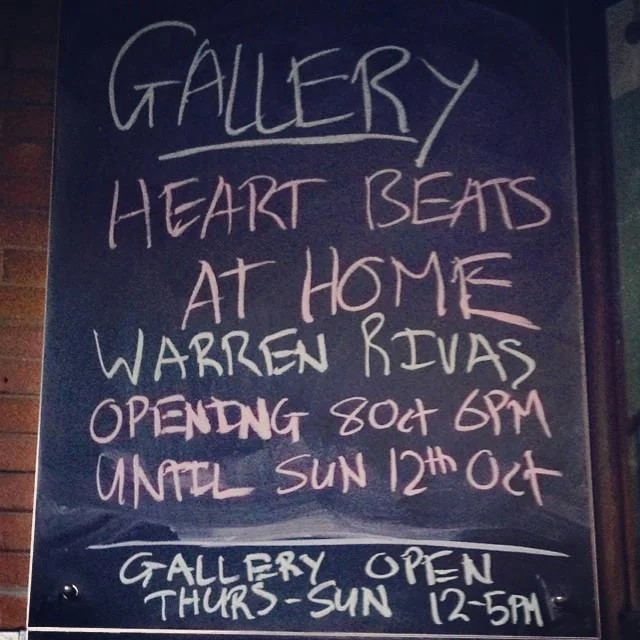 GALLERY
HEART BEATS
AT HOME
WARREN RIVAS
OPENING 8Oct 6PM
UNTIL SUN 12th Oct
GALLERY OPEN
THURS-SUN 12-5PM